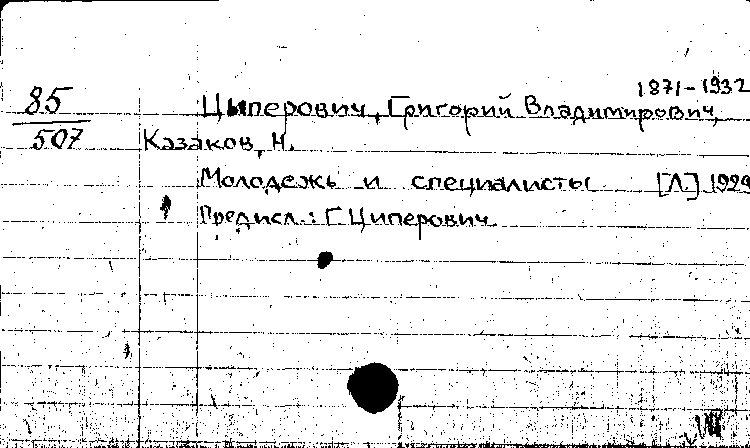 1871-1932
85 Цыперович, Григорий Владимирович,
507 Казаков, Н.
Молодежь и специалисты [Л.] 1929
Предисл.: Г. Циперович